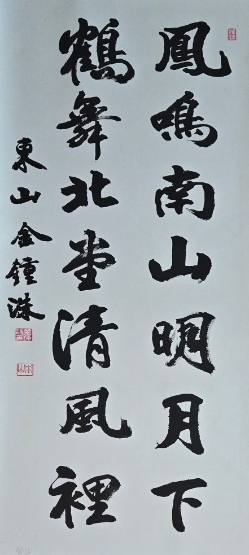 鳳鳴南山明月下
鶴舞北堂清風裡
東山金鍾洙